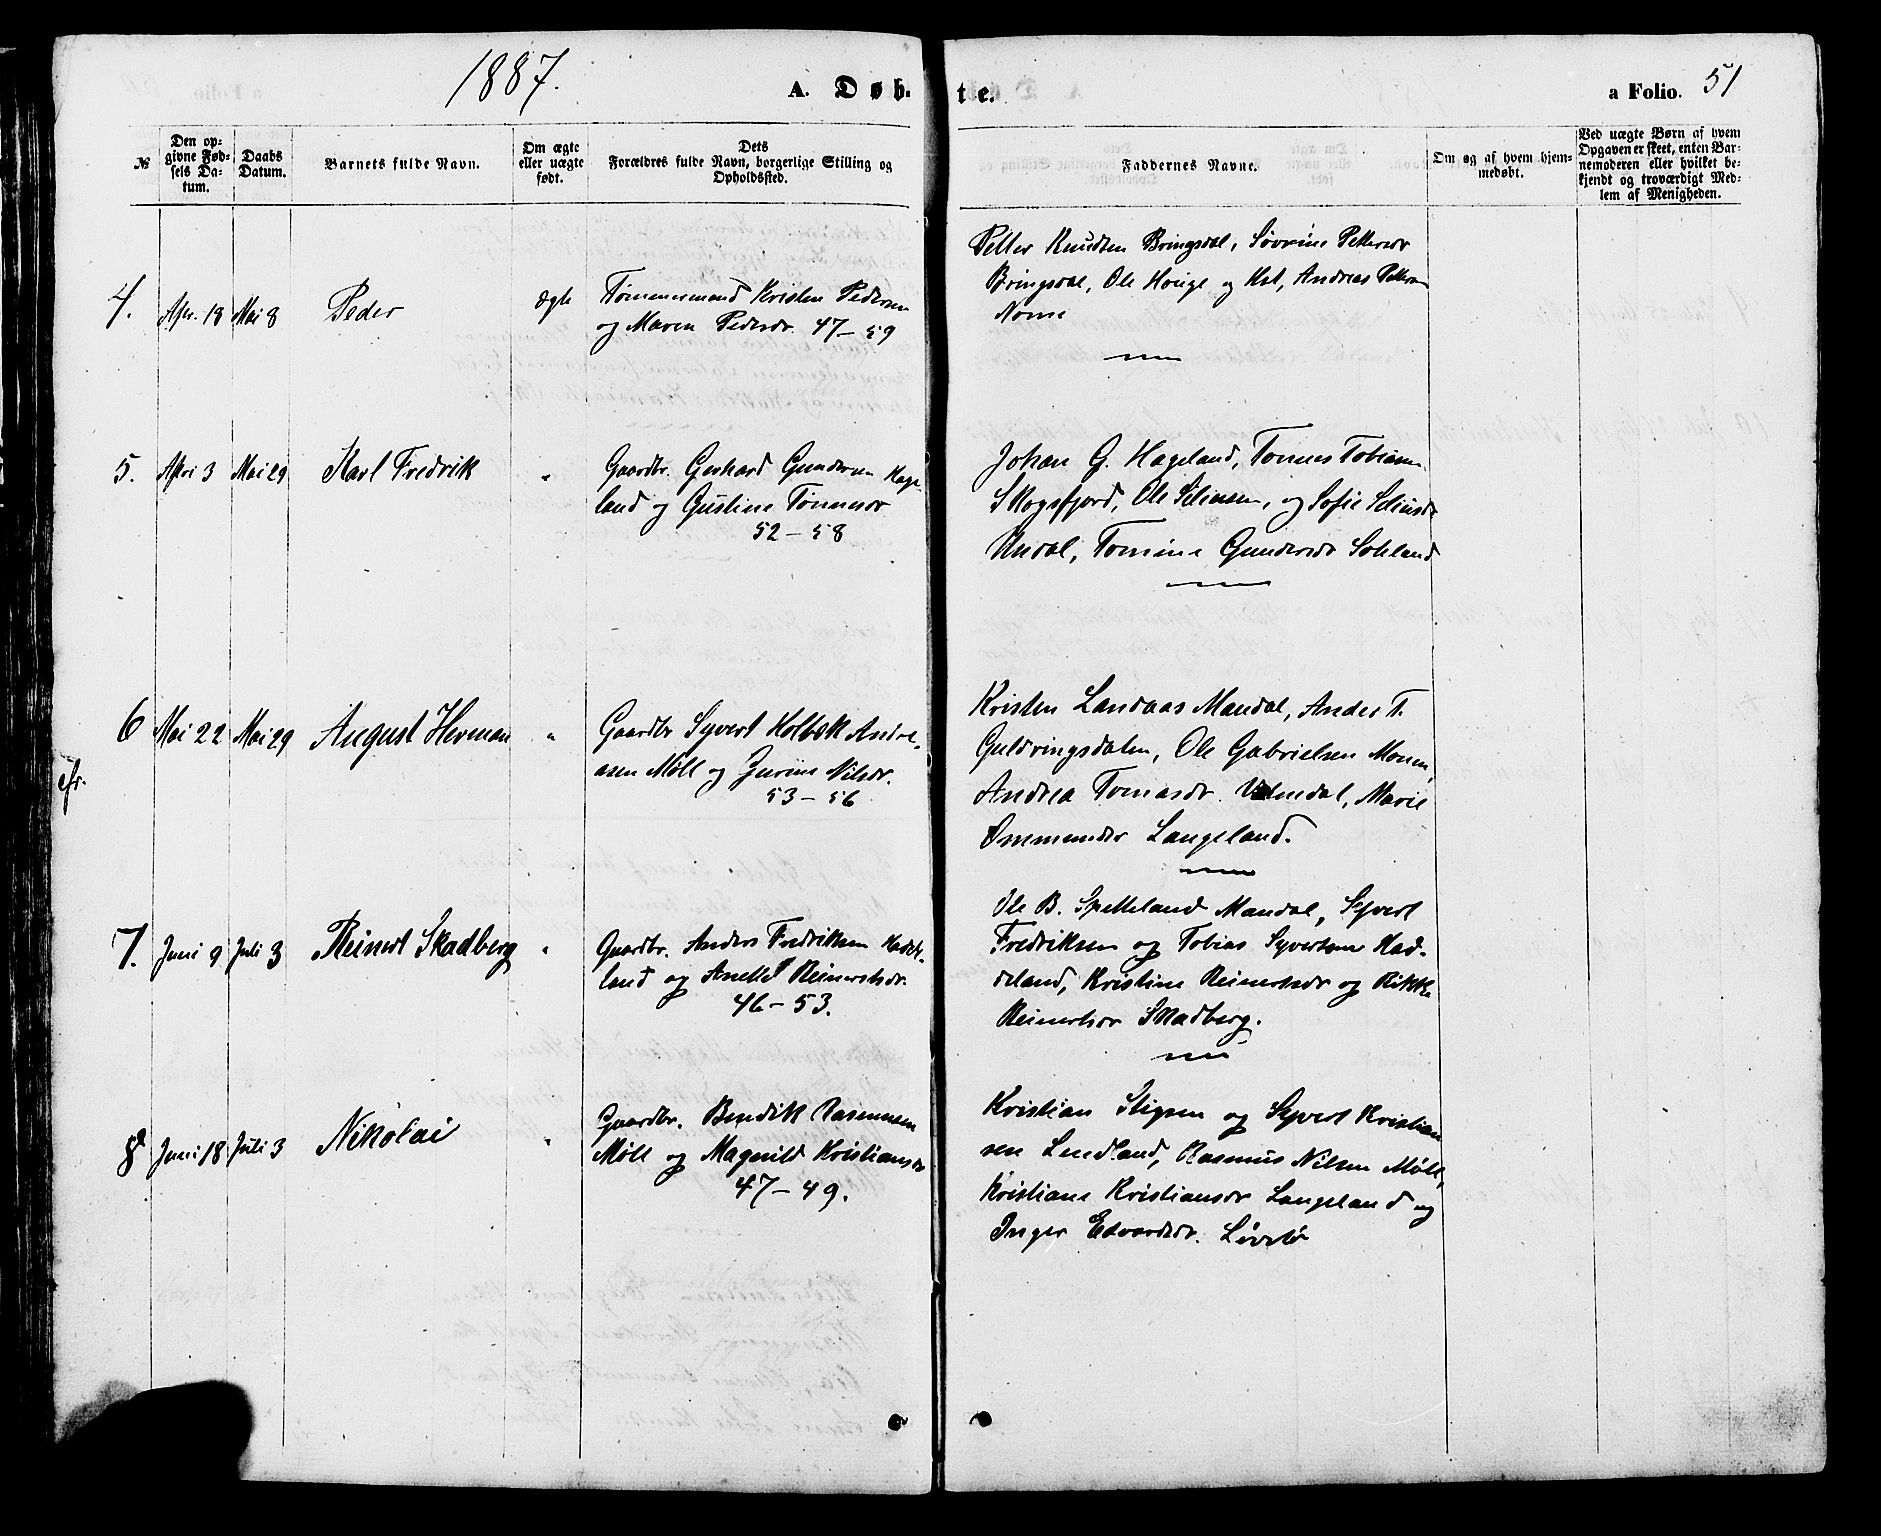 1887.
A. Døb-
te.
a Folio. 51
№
Den op-
givne Fød-
sels Da-
tum.
Daabs
Datum.
Barnets fulde Navn.
Om ægte
eller uægte
født.
Dets
Forældres fulde Navn, borgerlige Stilling og
Opholdssted.
Faddernes Navne.
Om og af hvem hjem-
medøbt.
Ved uægte Børn af hvem
Opgaven er skeet, enten Bar-
nemoderen eller hvilket be-
kjendt og troværdigt Med-
lem af Menigheden.
4. Apr. 18 Mai 8 Peder ægte
Tømmermand Kristen Pedersen
og Maren Pedersdr. 47-59
Petter Knudsen Bringsdal, Sørine Pettersdr
Bringsdal, Ole Houge og Kst, Andreas Petersen
Nome
5. Apri 3 Mai 29 Karl Fredrik "
Gaardbr. Gerhard Gundersen Hage-
land og Gustine Tønnesdr
52-58
Johan G. Hageland, Tønnes Tobiasen
Skogsfjord, Ole Selinsen, og Sofie Selinsdr
Undal, Tomine Gundersdr Sokland
6 Mai 22 Mai 29 August Herman "
cfr.
Gaardbr Syvert Holbæk Andre-
asen Møll og Jurine Nilsdr.
53-56
Kristen Landaas Mandal, Anders T.
Guldringsdalen, Ole Gabrielsen Monen,
Andrea Tomasdr. Undal, Marie
Ommundsdr Langeland.
7. Juni 9 Juli 3 Reinert Skadberg "
Gaardbr. Anders Fredriksen Haddel-
land og Anette Reinertsdr.
46-53.
Ole B. Spetteland Mandal, Syvert
Fredriksen og Tobias Syvertsen Had-
deland, Kristine Reinertsdr og Rikke
Reinertsdr Skadberg.
8 Juni 18 Juli 3 Nikolai "
Gaardbr. Bendik Rasmusen
Møll og Magnild Kristiansdr
47-49.
Kristian Stigsen og Syvert Kristian
sen Lindland, Rasmus Nilsen Møll,
Kristiane Kristiansdr Langeland og
Inger Edvardsdr. Løvdø